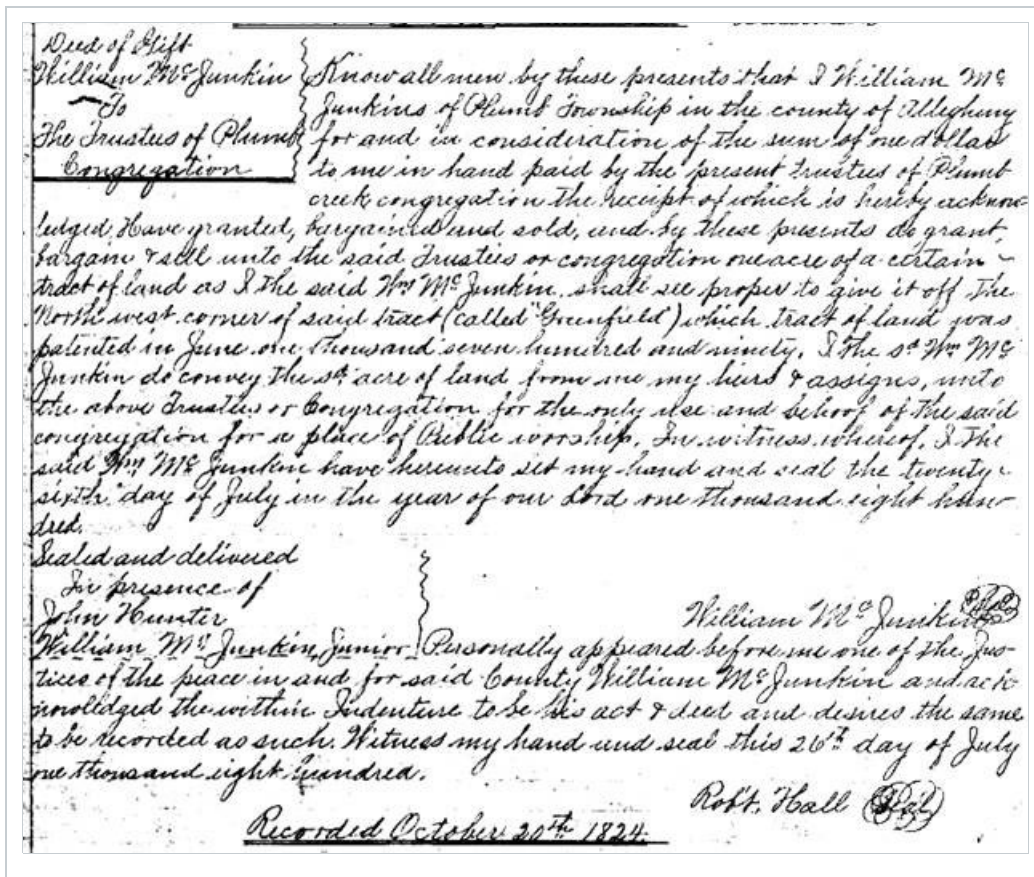 Deed of Gift
William McJunkin
To
The Trustees of Plumb
Congregation
Know all men by these presents that I William Mc
Junkins of Plumb Township in the county of Allegheny
for and in consideration of the sum of one dollar
to me in hand paid by the present trustees of Plumb
creek congregation the receipt of which is hereby acknow-
ledged, Have granted, bargained and sold, and by these presents do grant,
bargain & sell unto the said Trustees or congregation one acre of a certain
tract of land as I the said Wm McJunkin, shall see proper to give it off the
North west corner of said tract (called "Greenfield) which tract of land was
patented in June one thousand seven hundred and ninety, I the sd Wm Mc
Junkin do convey the sd acre of land from me my heirs & assigns, unto
the above Trustees or Congregation for the only use and behoof of the said
congregation for a place of Public worship. In witness whereof, I the
said Wm McJunkin have hereunto set my hand and seal the twenty-
sixth day of July in the year of our Lord one thousand eight hun-
dred.
Sealed and delivered
In presence of
John Hunter
William McJunkin Junior
William McJunkin Seal
Personally appeared before me one of the Jus-
tices of the peace in and for said County William McJunkin and ack-
nowledged the within Indenture to be his act & deed and desires the same
to be recorded as such. Witness my hand and seal this 26th day of July
one thousand eight hundred.
Robt. Hall Seal
Recorded October 20th 1824.